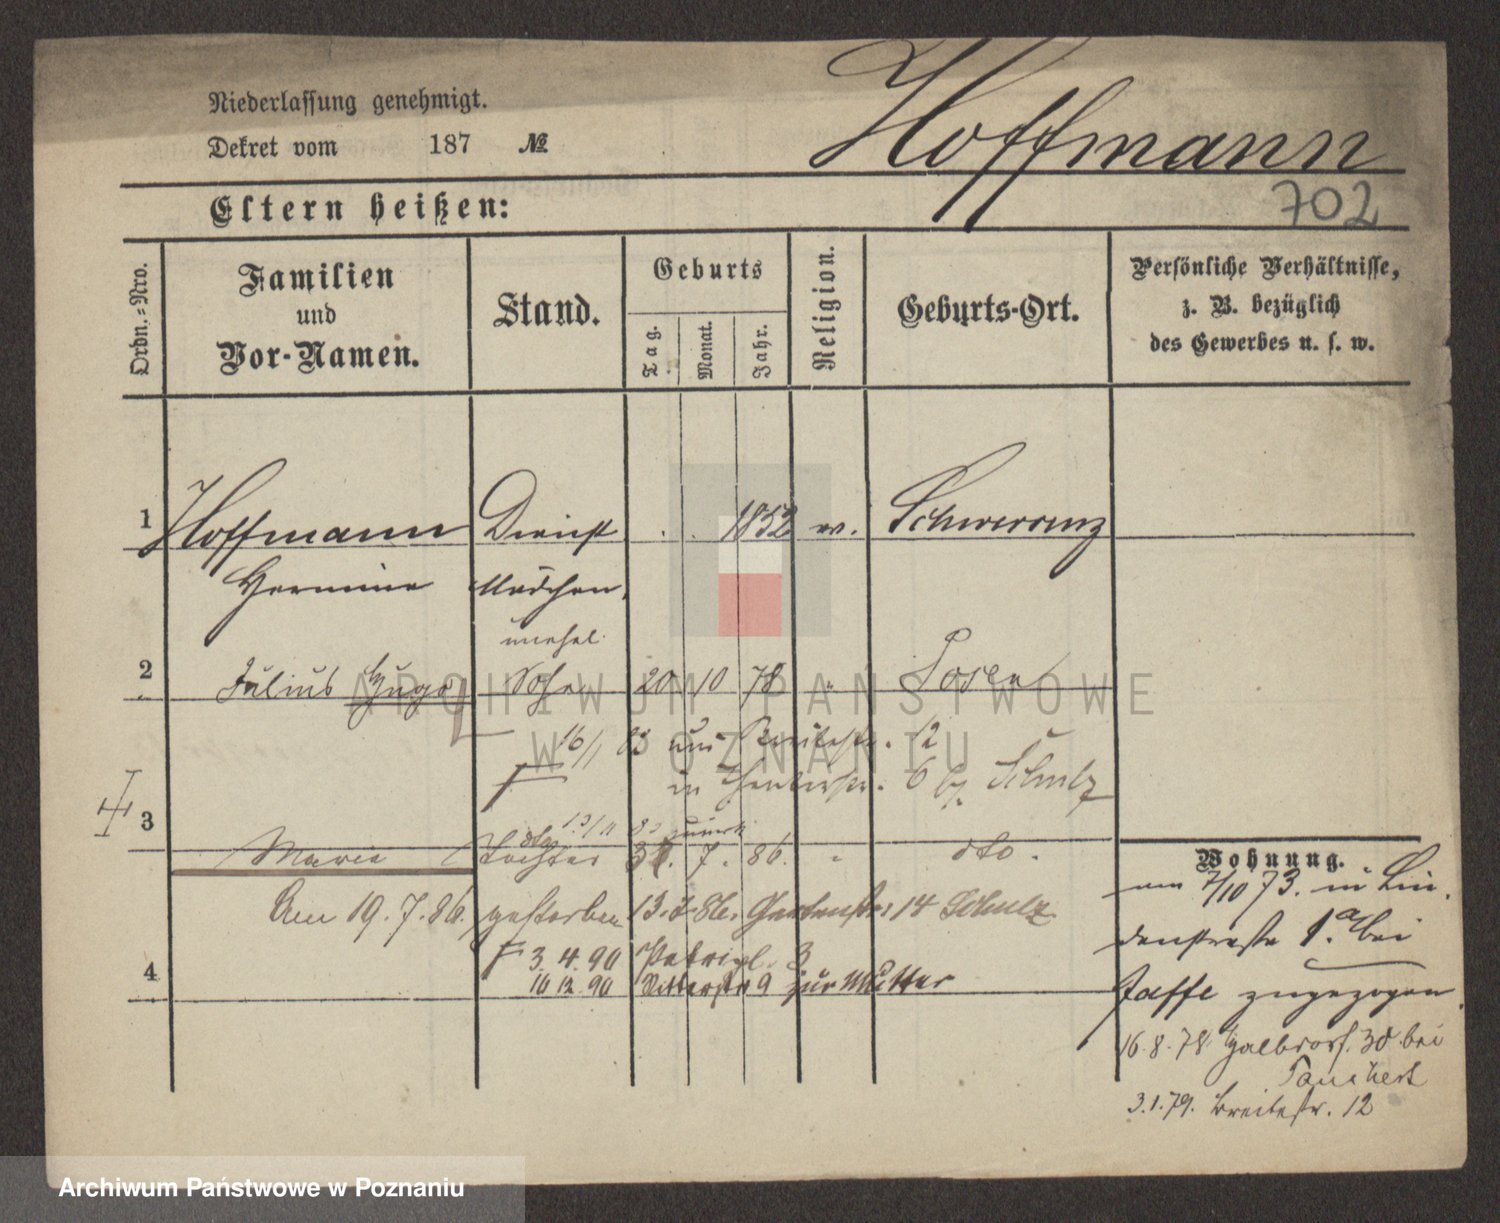 Niederlassung genehmigt.
Dekret vom 187 №
Hoffmann
702
Eltern heißen:
Ordn.-Nro.
Familien
und
Vor-Namen.
Stand.
Geburts
Tag.
Monat.
Jahr.
Religion.
Geburts-Ort.
Persönliche Verhältnisse,
z. B. bezüglich
des Gewerbes u. s. w.
1 Hoffmann Dienst . . 1852 ev. Schwersenz
Hermine Mädchen,
unehel.
2 Julius Hugo Sohn 20 10 78 " Posen
16/1 83 aus Breitestr. 12
in 6 bei Schulz
3
Marie Tochter 7. 86. " dto.
Am 19.7.86. gestorben 13.7.86. Gartenstr. 14 Schulz
3. 4. 90 3
4 10 12 90 Ritterstr 9 zur Mutter
Wohnung.
am 7/10 73. in Lin-
denstraße 1.a bei
Jaffe zugezogen.
16.8.78 Halbdorf. 30 bei
3.1.79. Breitestr. 12
ARCHIWUM PAŃSTWOWE
W POZNANIU
Archiwum Państwowe w Poznaniu